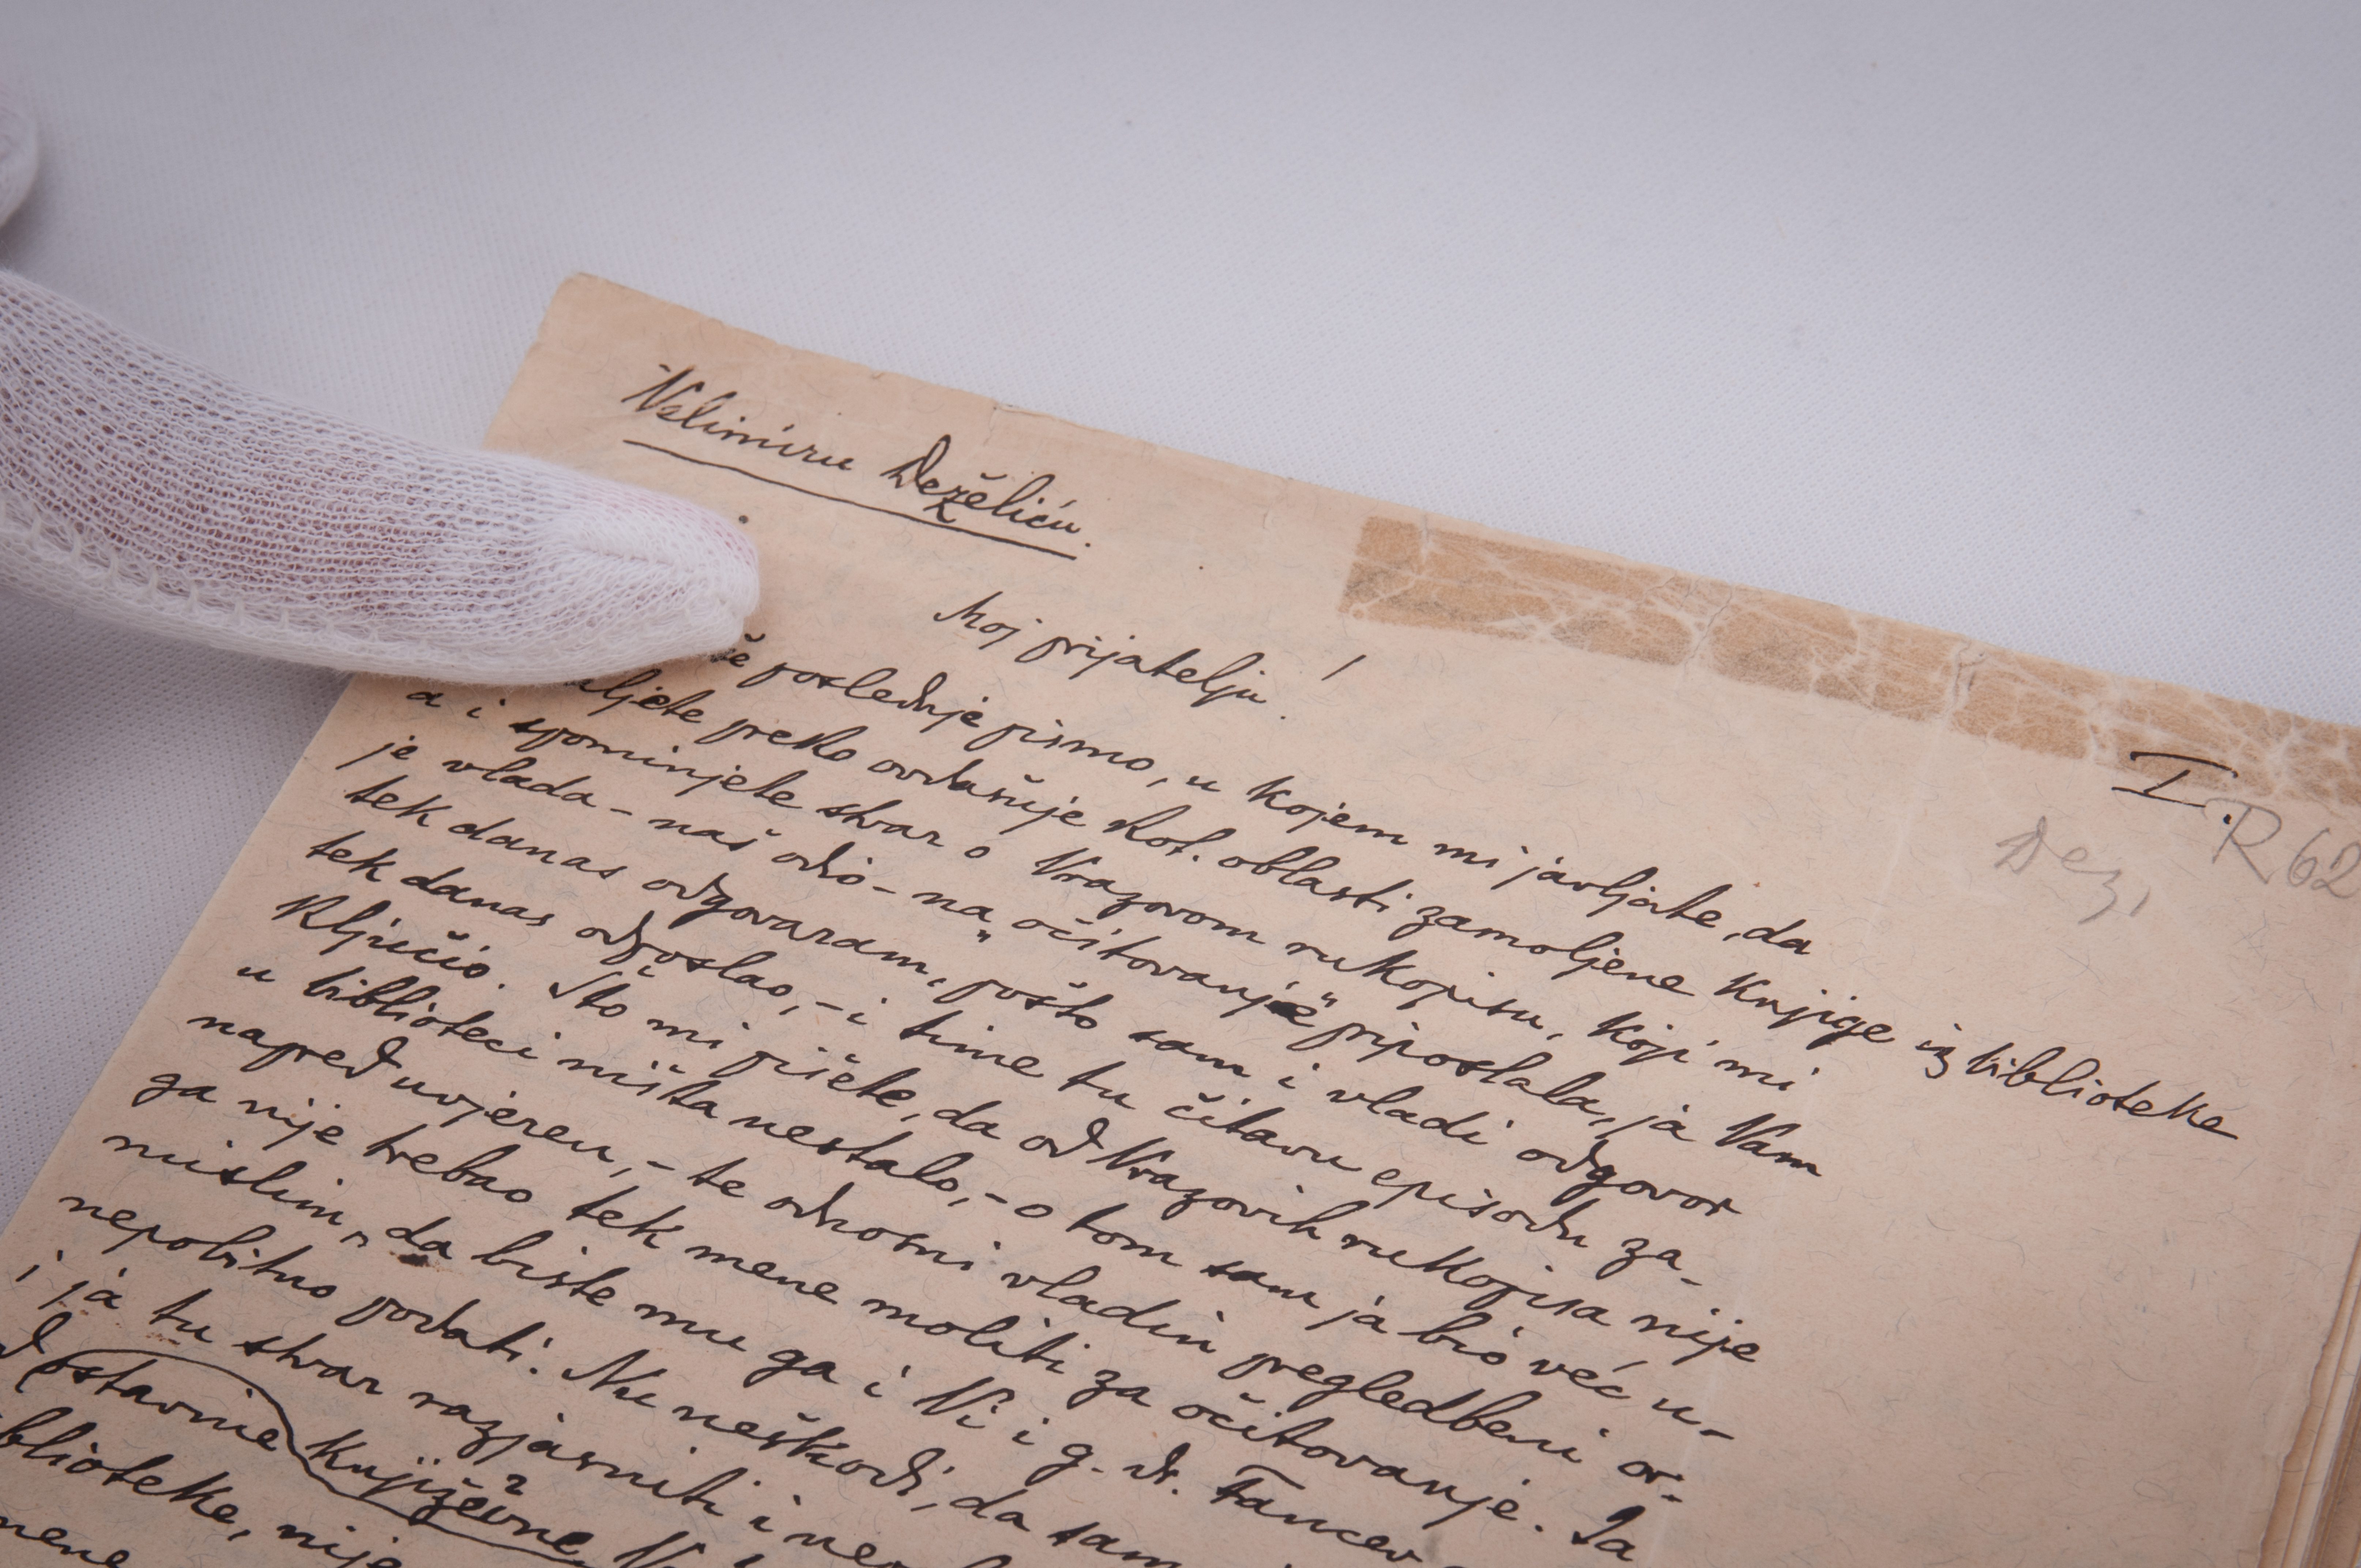 Velimiru Deželiću.
Moj prijatelju!
I.
Dez, R 62
še poslednje pismo, u kojem mi javljate, da
aljete preko ovdašnje kot. oblasti zamoljene knjige iz biblioteke
a i spominjete stvar o Vrazovom rukopisu, koji mi
je vlada - naš odio - na „očitovanje" priposlala, ja Vam
tek danas odgovaram, pošto sam i vladi odgovor
tek danas odposlao, - i time tu čitavu episodu za-
ključio. Što mi pišete, da od Vrazovih rukopisa nije
u biblioteci ništa nestalo, - o tom sam ja bio već u-
napred uvjeren, - te odnosni vladin pregledbeni or-
ga nije trebao tek mene moliti za očitovanje. Ja
mislim, da biste mu ga i Vi i g. dr. Fancev
nepobitno podati. Nu neškodi, da sam
i ja tu stvar razjasniti i
ostavine književne
blioteke, nije
mene